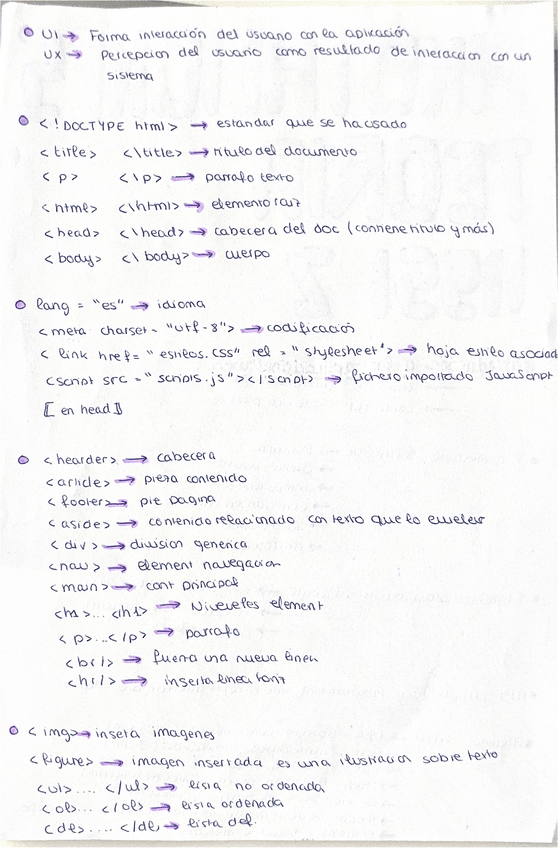 UI → Forma interacción del usuario con la aplicación
UX → Percepcion del usuario como resultado de interaccion con un
sistema
<!DOCTYPE html> → estandar que se ha usado
<title> <\title> → titulo del documento
<p> <\p> → parrafo texto
<html> <\html> → elemento raiz
<head> <\head> → cabecera del doc (contiene titulo y más)
<body> <\body> → cuerpo
lang = "es" → idioma
<meta charset = "utf-8"> → codificación
<link href = "estilos.css" rel = "stylesheet"> → hoja estilo asociad
<script src = "scripts.js"></script> → fichero importado JavaScript
[en head]
<hearder> → cabecera
<article> → pieza contenido
<footer> → pie pagina
<aside> → contenido relacionado con texto que lo
<div> → division generica
<nav> → element navegacion
<main> → cont principal
<h1>... <h1> → Niveles element
<p>...</p> → parrafo
<br/> → fuerza una nueva linea
<hr/> → inserta linea
<img> → inseta imagenes
<figure> → imagen insertada es una ilustracion sobre texto
<ul>.... </ul> → lista no ordenada
<ol>... </ol> → lista ordenada
<dl>.... </dl> → lista def.